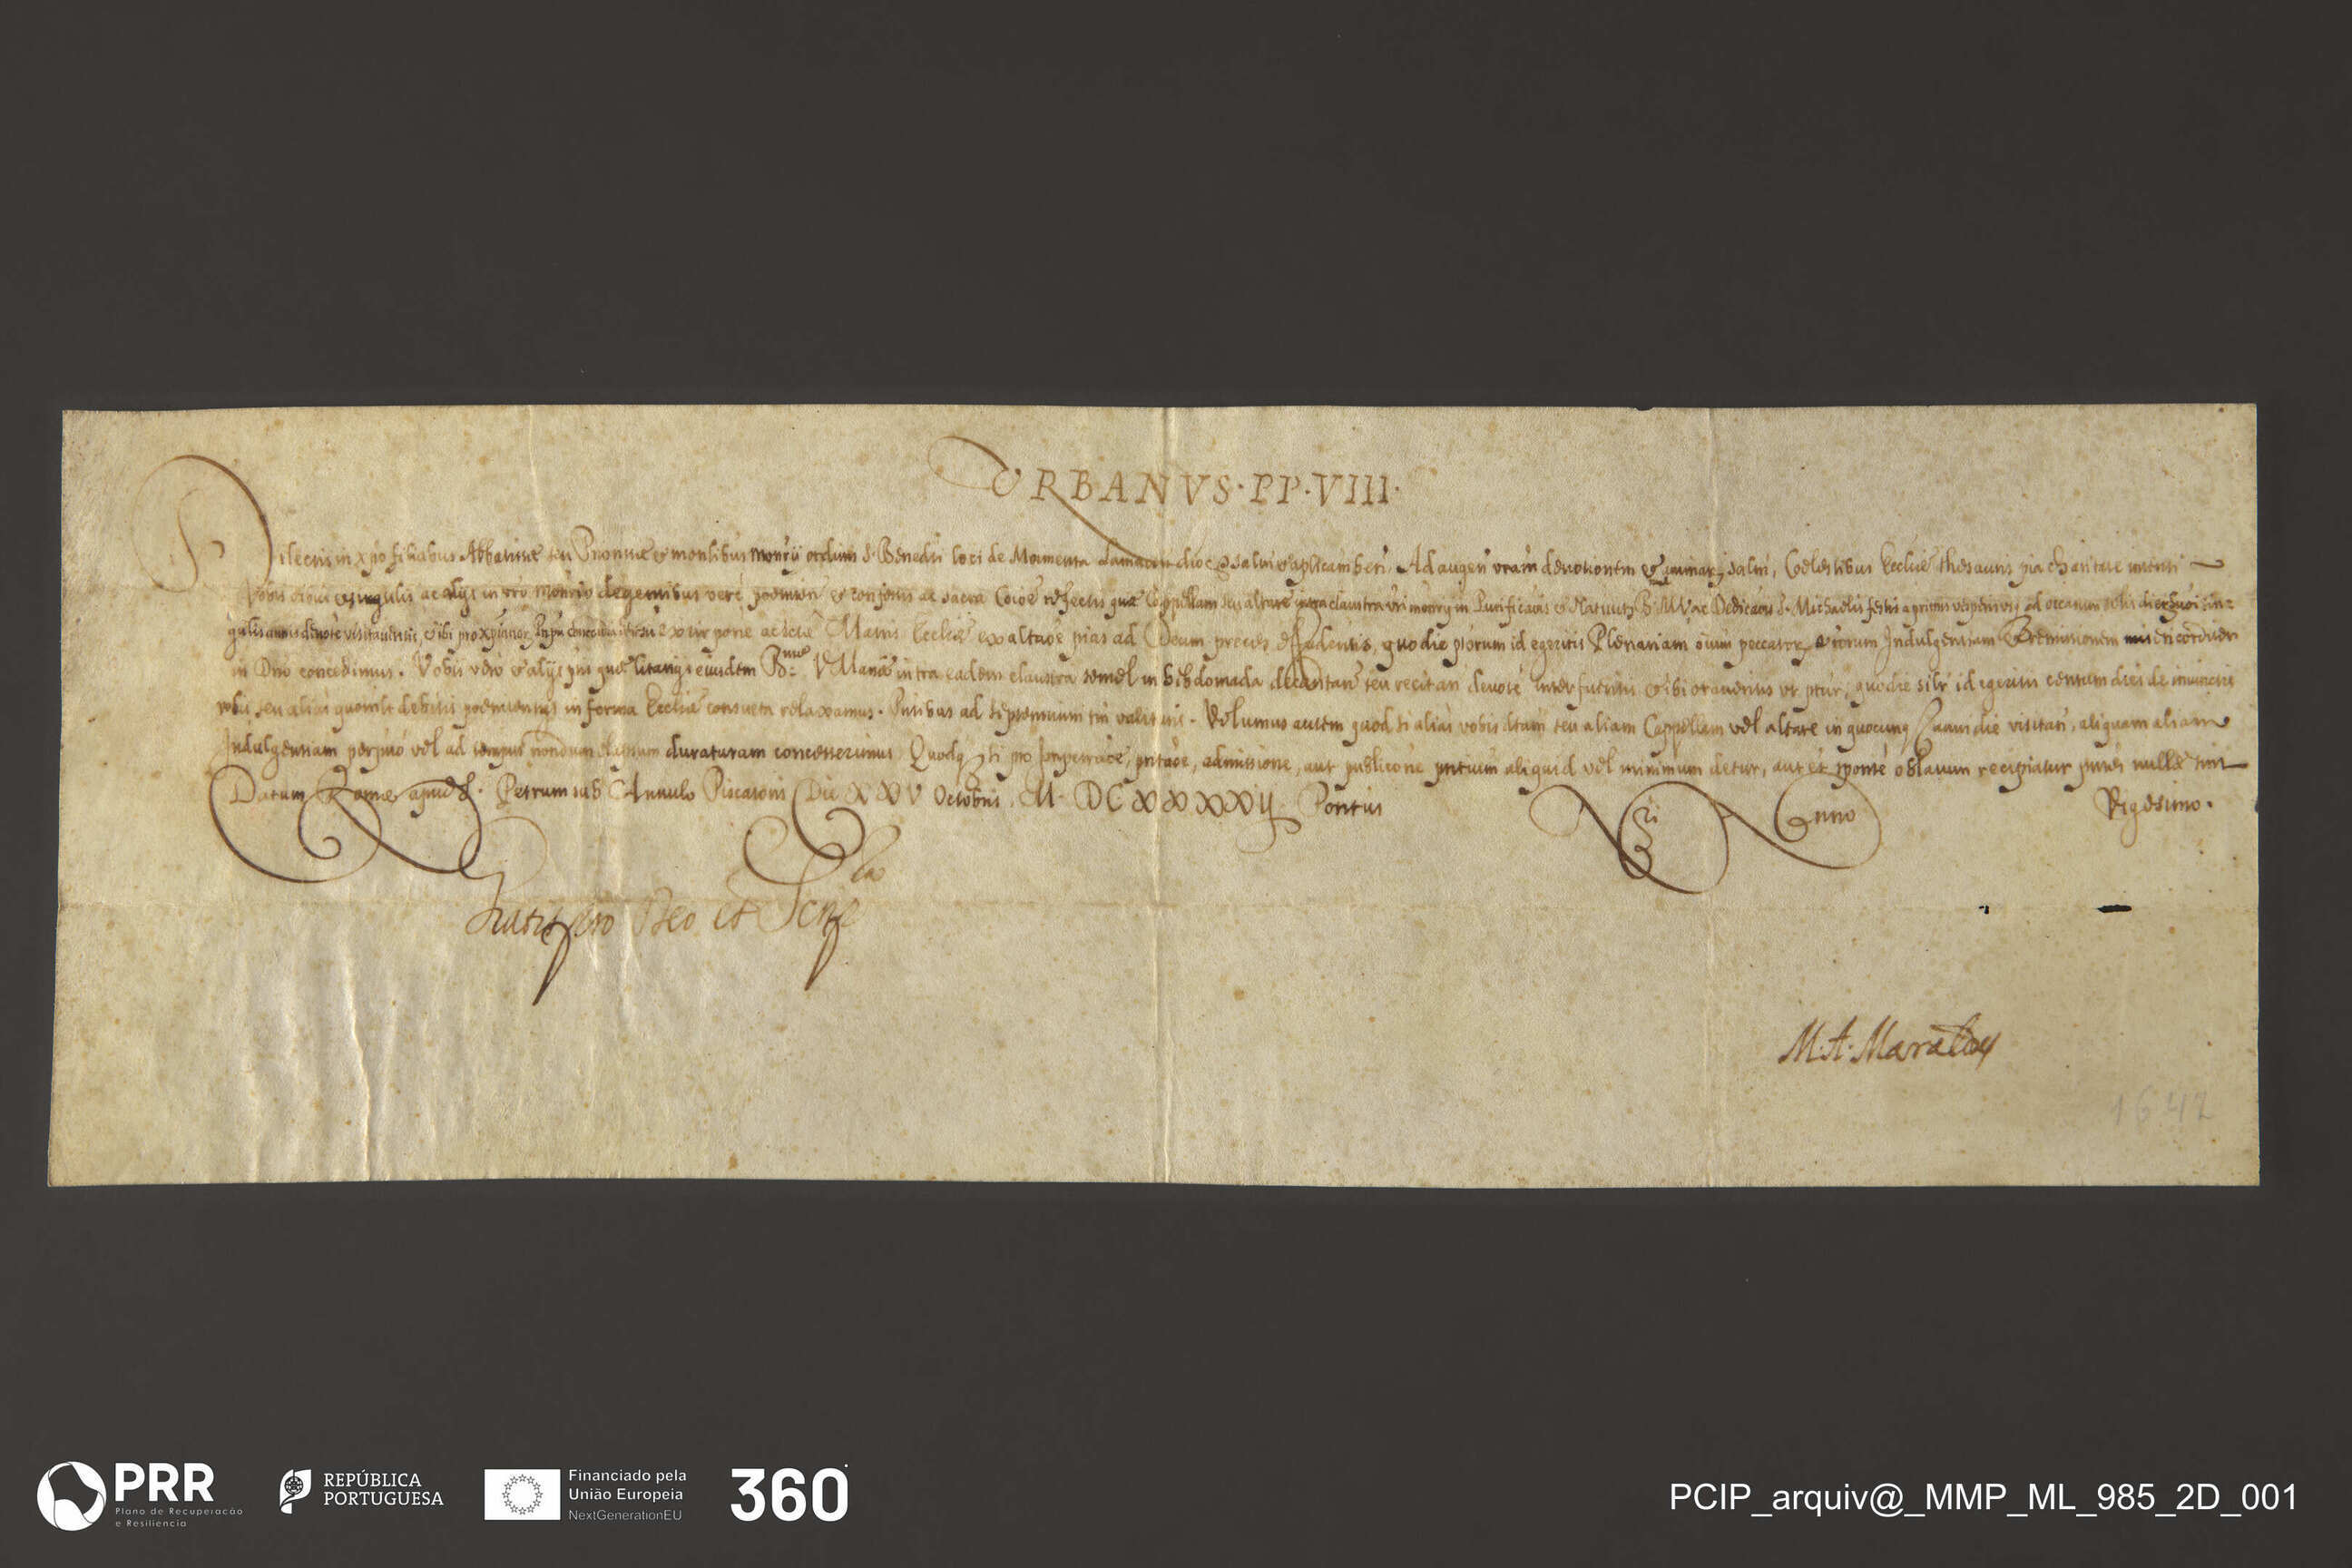 URBANVS·PP·VIII·
Dilectis in xpo filiabus Abbatissæ seu Priorissæ et monialibus monrij ordinis S. Benedti loci de Moimenta Lamacen dioc salm et aplicam ben. Ad augen vram devotionem et animar salm, Cœlestibus Ecclie thesauris pia charitate intenti
Vobis oibus et singulis ac alijs in vro monrio degentibus vere poenitên et confessis ac sacra Coïoe refectis quæ Cappellam seu altare intra claustra vri monrij in Purificaõis et Nativitis B. M. V. ac Dedicaõis S. Michaelis festis a primis vesperis usq ad occasum solis dier huõi sin=
gulis annis devote visitaveritis, et ibi pro xpianor Prpum concordia heresũ extirpone ac sctæ Matris Ecclie exaltaõe pias ad Deum preces effuderitis, quo die ptorum id egeritis Plenariam oium peccator vrorum Indulgentiam et remissionem misericorditer
in Dno concedimus. Vobis vero et alijs pis quæ litanijs eiusdem B.mæ V. Mariæ intra eadem claustra semel in hebdomada decantari seu recitari devote interfueritis et ibi oraveritis ut ptur, quo die silr id egeritis centum dies de iniunctis
vobis seu alias quomlt debitis poenitentijs in forma Ecclie consueta relaxamus. Pntibus ad septennium tm valituris. Volumus autem quod si alias vobis dtam seu aliam Cappellam vel altare in quocunq anni die visitan, aliquam aliam
Indulgentiam perpuo vel ad tempus nondum elapsum duraturam concesserimus, Quodq si pro Impetraõe, pntaõe, admissione, aut publicaõne pntium aliquid vel minimum detur, aut et sponte oblatum recipiatur pntes nullæ sint
Datum Romæ apud S. Petrum sub Annulo Piscatoris Die XXV Octobris M·DCXXXXIJ Pontus Nri Anno Vigesimo.
Gratis pro Deo et Scrip.ra
M. A. Maraldus
1642
PRR
Plano de Recuperação
e Resiliência
REPÚBLICA
PORTUGUESA
Financiado pela
União Europeia
NextGenerationEU
360
PCIP_arquiv@_MMP_ML_985_2D_001